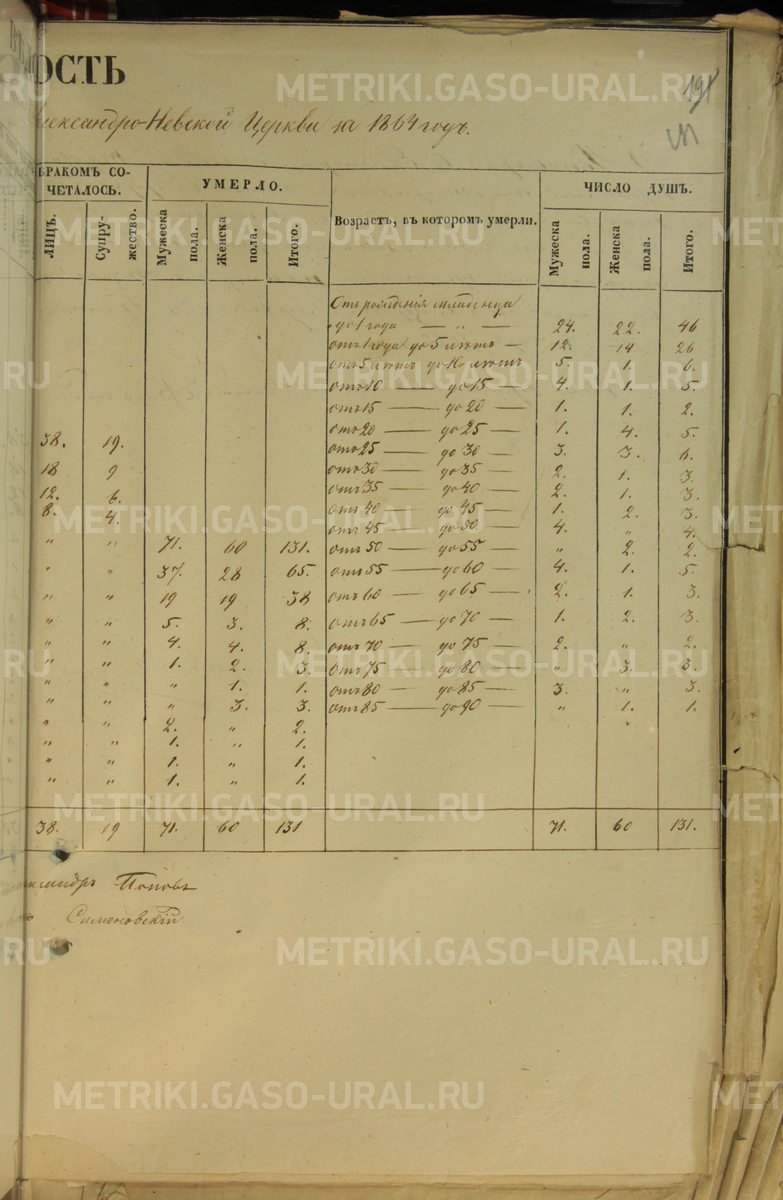 ОСТЬ
191
Александро-Невской Церкви за 1864 годъ.
БРАКОМЪ СО-
ЧЕТАЛОСЬ.
УМЕРЛО.
Возрастъ, въ которомъ умерли.
ЧИСЛО ДУШЪ.
ЛИЦЪ.
Супру-
жество.
Мужеска
пола.
Женска
пола.
Итого.
Мужеска
пола.
Женска
пола.
Итого.
Отъ рожденія младенца
до 1 года — „ — 24. 22. 46
отъ 1 года до 5 лѣтъ — 12. 14 26
отъ 5 лѣтъ до 10 лѣтъ 5. 1. 6.
отъ 10 — до 15 — 4. 1. 5.
отъ 15 — до 20 — 1. 1. 2.
отъ 20 — до 25 — 1. 4. 5.
38. 19. отъ 25 — до 30 — 3. 3. 6.
18 9 отъ 30 — до 35 — 2. 1. 3.
12. 6. отъ 35 — до 40 — 2. 1. 3.
8. 4. от 40 — до 45 — 1. 2. 3.
отъ 45 — до 50 — 4. „ 4.
„ „ 71. 60 131. отъ 50 — до 55 — „ 2. 2.
„ „ 37. 28 65. отъ 55 — до 60 — 4. 1. 5.
„ „ 19 19 38 отъ 60 — до 65 — 2. 1. 3.
„ „ 5. 3. 8. отъ 65 — до 70 — 1. 2. 3.
„ „ 4. 4. 8. отъ 70 — до 75 — 2. „ 2.
„ „ 1. 2. 3. отъ 75 — до 80 — „ 3. 3.
„ „ „ 1. 1. отъ 80 — до 85 — 3. „ 3.
„ „ „ 3. 3. отъ 85 — до 90 — „ 1. 1.
„ „ 2. „ 2.
„ „ 1. „ 1.
„ „ 1. „ 1.
„ „ 1. „ 1.
38. 19 71. 60 131 71. 60 131.
Поповъ
Симоновскій
METRIKI.GASO-URAL.RU